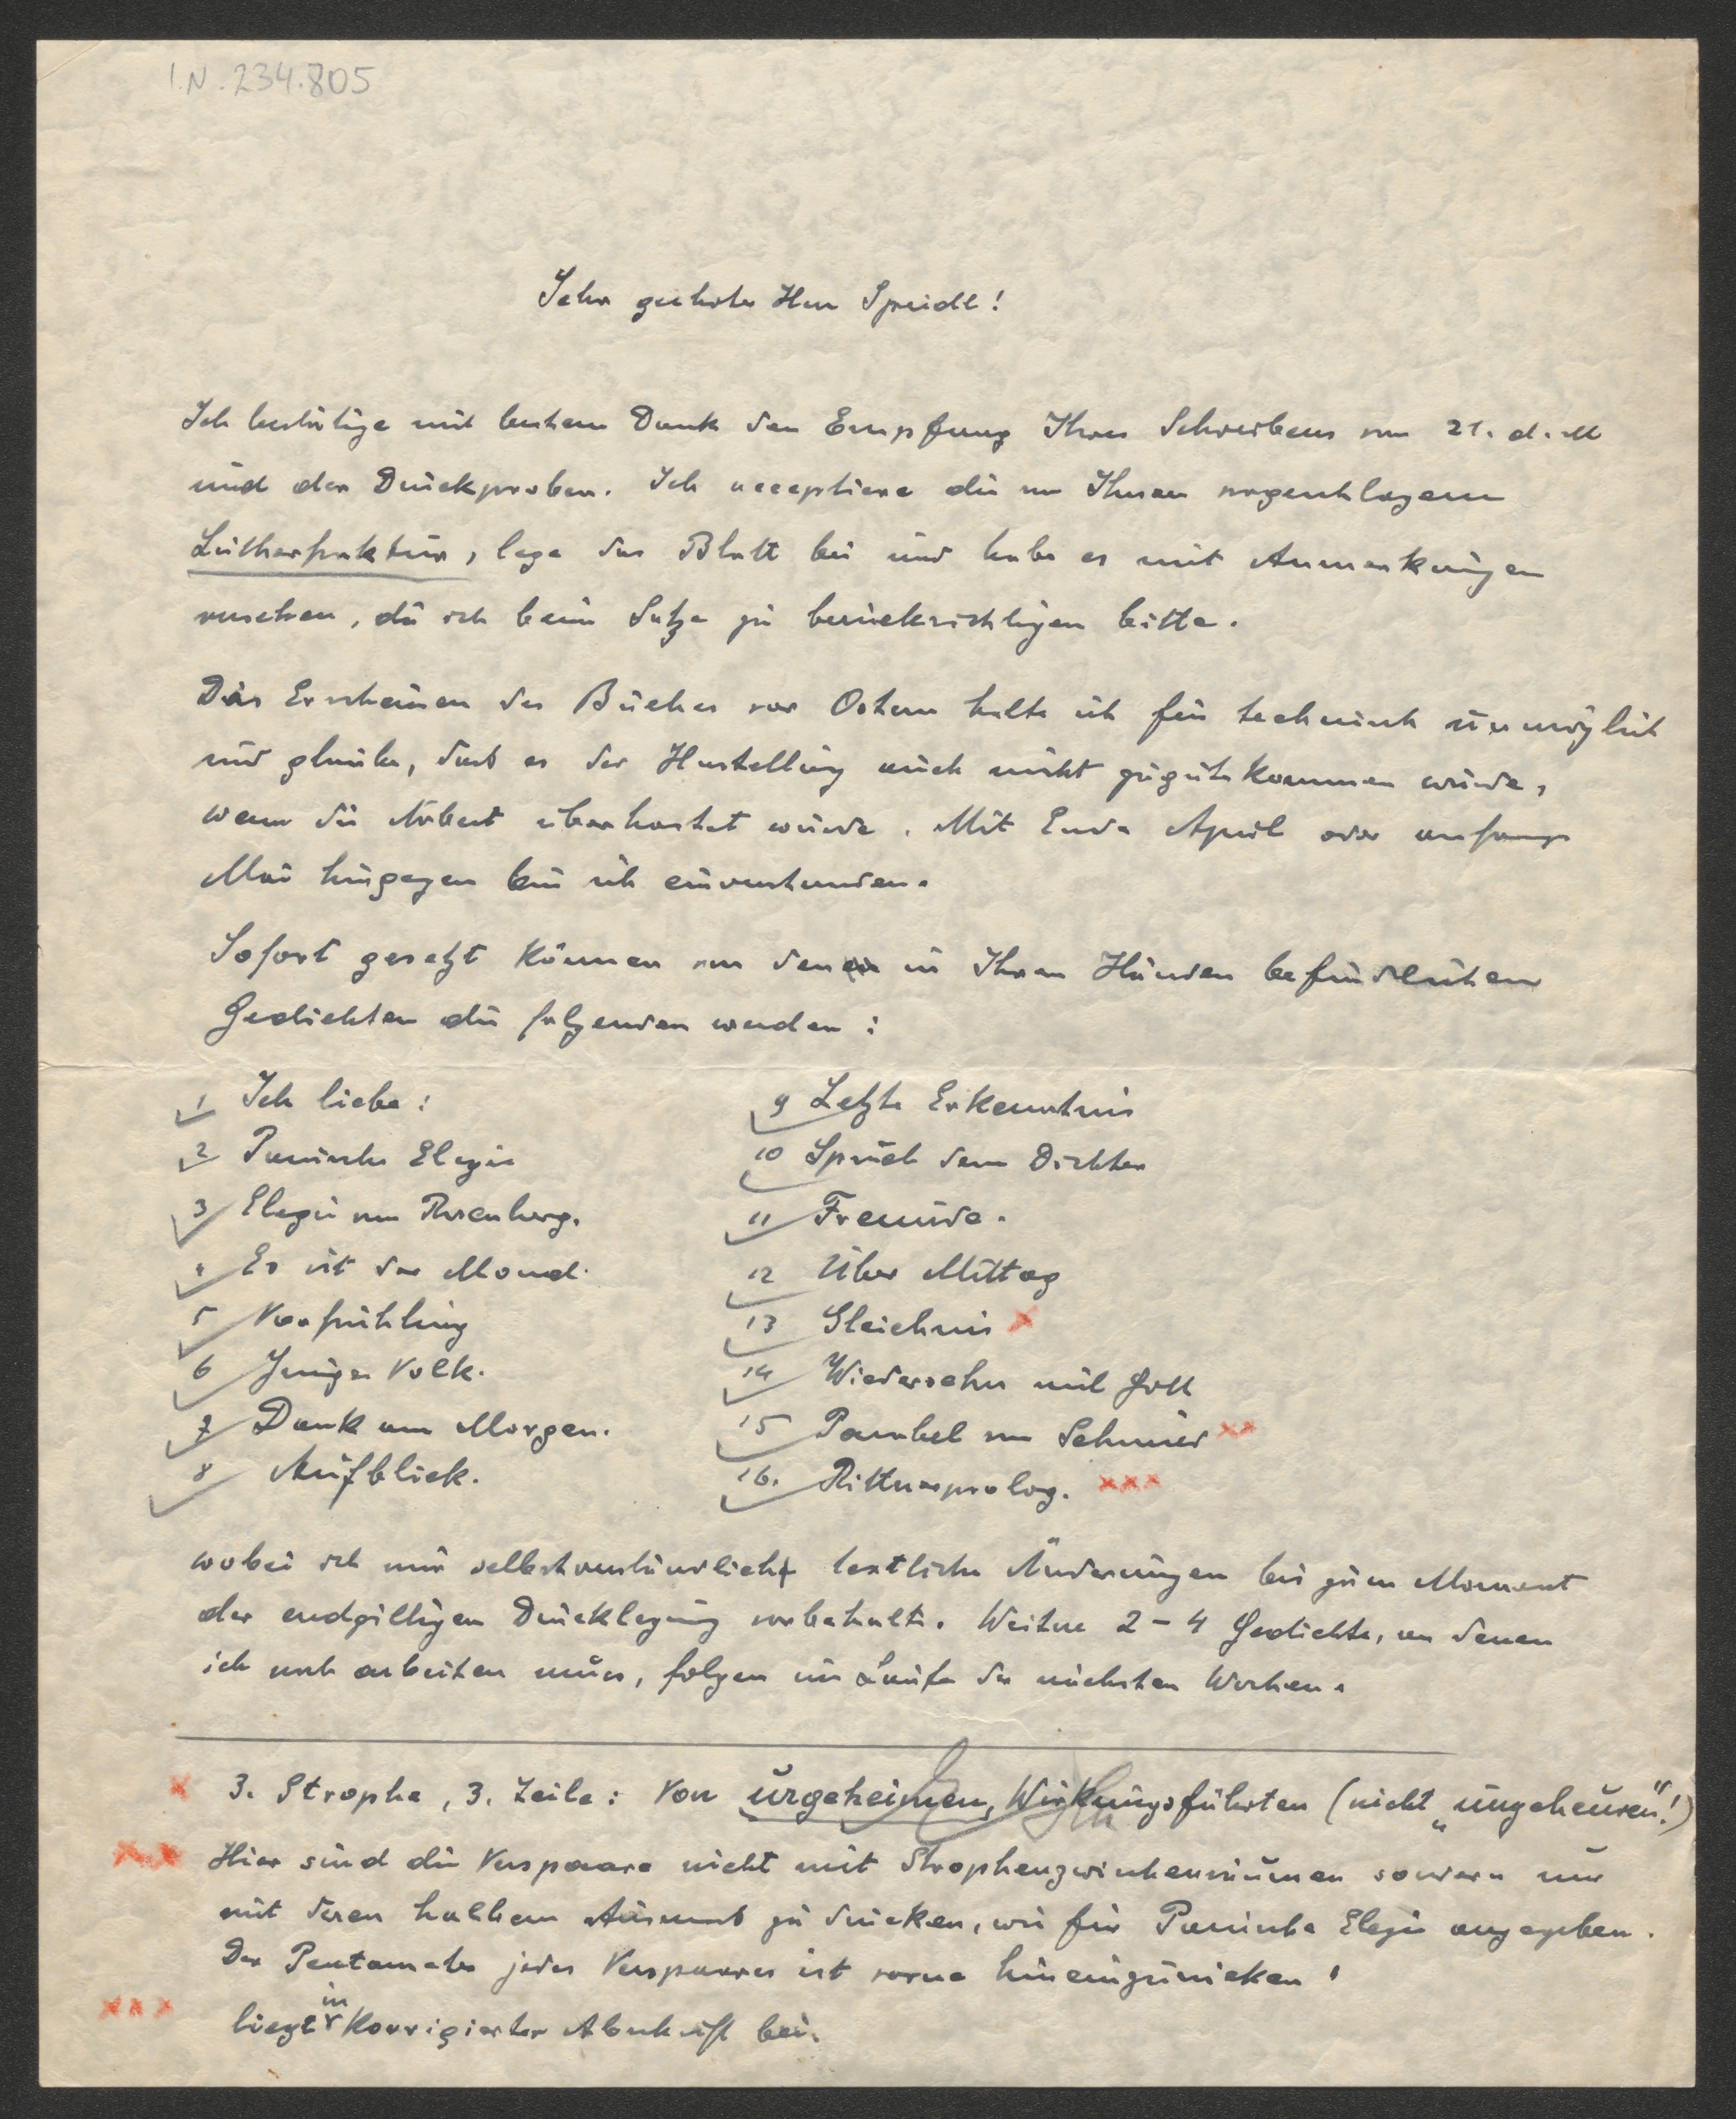 I.N. 234.805
Sehr geehrter Herr Speidl!
Ich bestätige mit bestem Dank den Empfang Ihres Schreibens vom 21. d. M
und der Druckproben. Ich acceptiere die von Ihnen vorgeschlagene
Lutherfraktur, lege das Blatt bei und habe es mit Anmerkungen
versehen, die ich beim Satze zu berücksichtigen bitte.
Das Erscheinen des Buches vor Ostern halte ich für technisch unmöglich
und glaube, dass es der Herstellung auch nicht zugutekommen würde,
wenn die Arbeit überhastet würde. Mit Ende April oder anfangs
Mai hingegen bin ich einverstanden.
Sofort gesetzt können von den in Ihren Händen befindlichen
Gedichten die folgenden werden:
1 Ich liebe:
2 Panische Elegie
3 Elegie vom Rosenberg.
4 Es ist der Mond.
5 Vorfrühling
6 Junges Volk.
7 Dank am Morgen.
8 Aufblick.
9 Letzte Erkenntnis
10 Spruch dem Dichter
11 Freunde.
12 Über Mittag
13 Gleichnis x
14 Wiedersehn mit Gott
15 Parabel vom Schmied xx
16. Rittnerprolog. xxx
wobei ich mir selbstverständlich textliche Änderungen bis zum Moment
der endgiltigen Drucklegung vorbehalte. Weitere 2-4 Gedichte, an denen
ich noch arbeiten muss, folgen im Laufe der nächsten Wochen.
x 3. Strophe, 3. Zeile: Von urgeheimen, Wirkungsfährten (nicht „ungeheuren"!)
xx Hier sind die Verspaare nicht mit Strophenzwischenräumen sondern nur
mit deren halbem Ausmass zu drucken, wie für Panische Elegie angegeben.
Der Pentameter jedes Verspaares ist vorne hineinzurücken!
xxx liegt in korrigierter Abschrift bei.